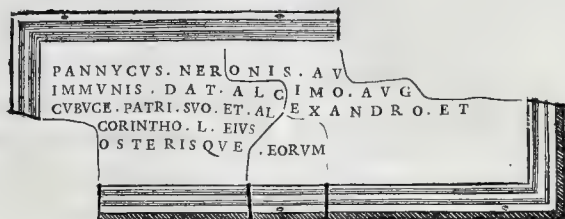 PANNYCVS. NERONIS. AV
IMMVNIS. DAT. ALCIMO. AVG
CVBVCE. PATRI. SVO. ET. ALEXANDRO. ET
CORINTHO. L. EIVS
OSTERISQVE .EORVM